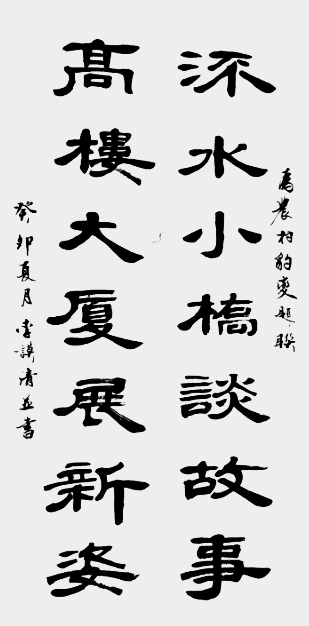 為農村豹變題聯
流水小橋談故事
髙樓大厦展新姿
癸卯夏月李謨清並書